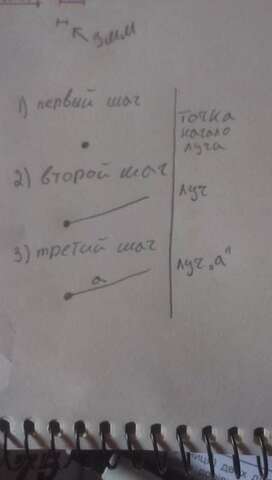 3мм
1) первый шаг
точка
начало
луча
2) второй шаг
луч
3) третий шаг
а
луч „а"